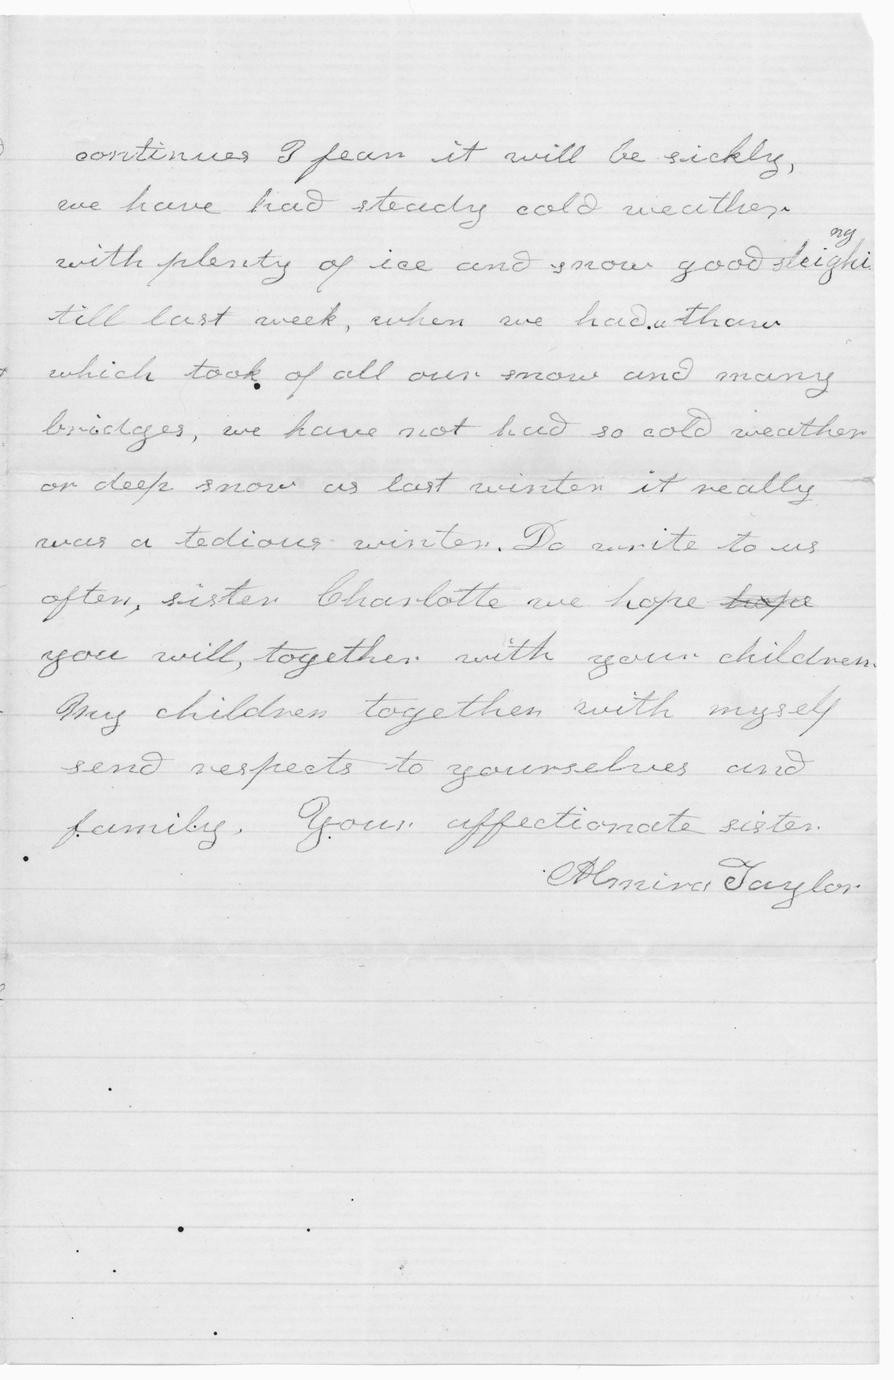 continues I fear it will be sickly,
we have had steady cold weather
with plenty of ice and snow good sleighing
till last week, when we had a thaw
which took of all our snow and many
bridges, we have not had so cold weather
or deep snow as last winter it really
was a tedious winter. Do write to us
often, sister Charlotte we hope hope
you will, together with your children.
My children together with myself
send respects to yourselves and
family. Your affectionate sister
Almira Taylor